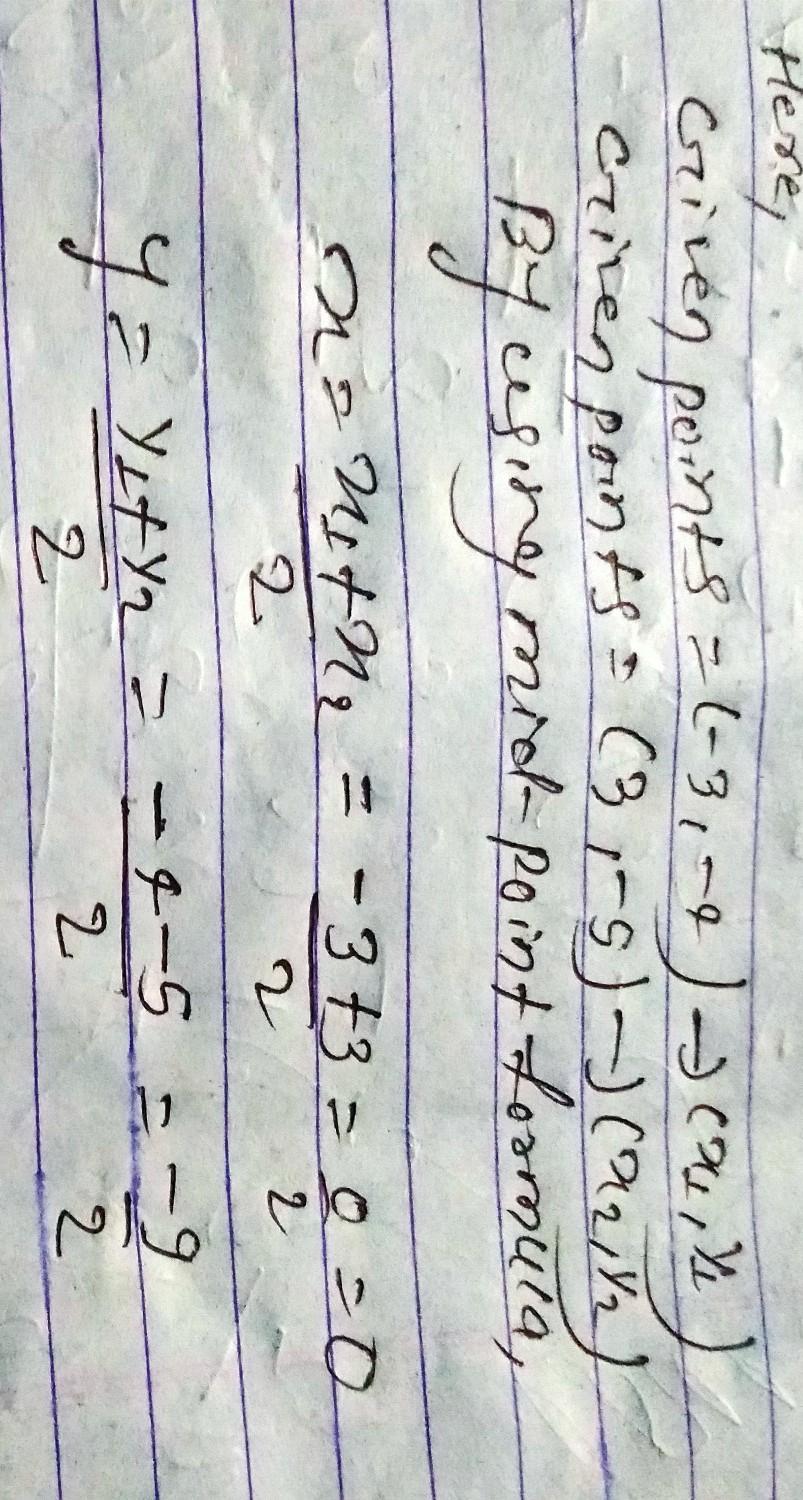 Here,
Given points = (-3, -4) → (x1, y1)
Given points = (3, -5) → (x2, y2)
By using mid-point formula,
x = x1+x2/2 = -3+3/2 = 0/2 = 0
y = y1+y2/2 = -4-5/2 = -9/2